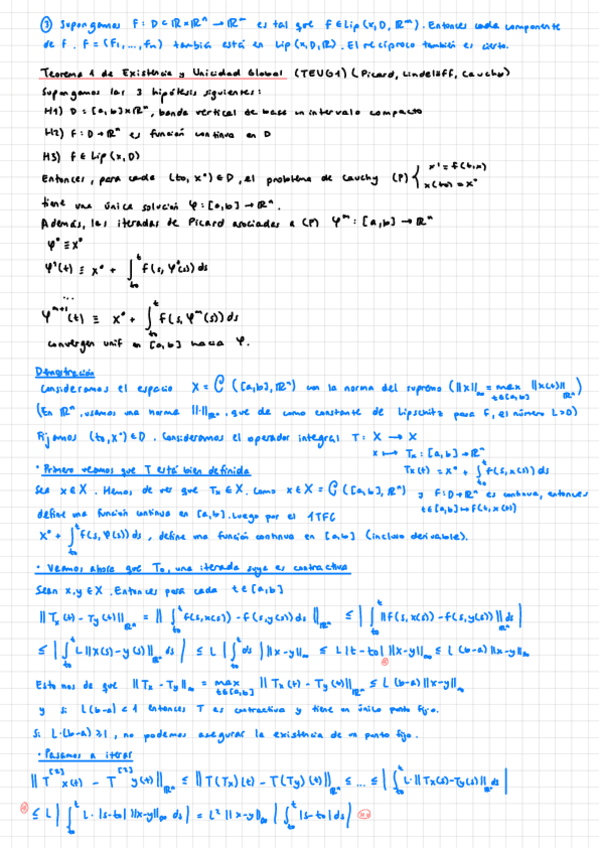 ③ Supongamos F: D ⊂ ℝ×ℝⁿ → ℝᵐ es tal que F ∈ Lip(x, D, ℝᵐ). Entonces cada componente
de F. F = (F₁, ..., Fₙ) también está en Lip(x, D, ℝ). El recíproco también es cierto.
Teorema 1 de Existencia y Unicidad Global (TEUG1) (Picard, Lindelöff, Cauchy)
Supongamos las 3 hipótesis siguientes:
H1) D = [a,b]×ℝⁿ, banda vertical de base un intervalo compacto
H2) F: D → ℝⁿ es función continua en D
H3) F ∈ Lip(x, D)
Entonces, para cada (t₀, x⁰) ∈ D, el problema de Cauchy (P) { x' = f(t,x)
x(t₀) = x⁰
tiene una única solución φ: [a,b] → ℝⁿ.
Además, las iteradas de Picard asociadas a (P) φᵐ: [a,b] → ℝⁿ
φ⁰ ≡ x⁰
φ¹(t) ≡ x⁰ + ∫_{t₀}^{t} f(s, φ⁰(s)) ds
...
φᵐ⁺¹(t) ≡ x⁰ + ∫_{t₀}^{t} f(s, φᵐ(s)) ds
convergen unif en [a,b] hacia φ.
Demostración
Consideramos el espacio X = C([a,b], ℝⁿ) con la norma del supremo (||x||_∞ = max_{t∈[a,b]} ||x(t)||_{ℝⁿ})
(En ℝⁿ, usamos una norma ||·||_{ℝⁿ}, que da como constante de Lipschitz para F, el número L>0)
Fijamos (t₀, x⁰) ∈ D. Consideramos el operador integral T: X → X
x ↦ Tx: [a,b] → ℝⁿ
Tx(t) = x⁰ + ∫_{t₀}^{t} f(s, x(s)) ds
· Primero veamos que T está bien definida
Sea x ∈ X. Hemos de ver que Tx ∈ X. Como x ∈ X = C([a,b], ℝⁿ) y F: D → ℝⁿ es continua, entonces
t ∈ [a,b] ↦ f(t, x(t))
define una función continua en [a,b]. Luego por el 1TFC
x⁰ + ∫_{t₀}^{t} f(s, φ(s)) ds, define una función continua en [a,b] (incluso derivable).
· Veamos ahora que T₀, una iterada suya es contractiva
Sean x,y ∈ X. Entonces para cada t ∈ [a,b]
||Tx(t) - Ty(t)||_{ℝⁿ} = || ∫_{t₀}^{t} f(s, x(s)) - f(s, y(s)) ds ||_{ℝⁿ} ≤ | ∫_{t₀}^{t} ||f(s, x(s)) - f(s, y(s))||_{ℝⁿ} ds |
≤ | ∫_{t₀}^{t} L ||x(s) - y(s)||_{ℝⁿ} ds | ≤ L | ∫_{t₀}^{t} ds | ||x-y||_∞ ≤ L |t-t₀| ||x-y||_∞ ≤ L (b-a) ||x-y||_∞
Esto nos da que ||Tx - Ty||_∞ = max_{t∈[a,b]} ||Tx(t) - Ty(t)||_{ℝⁿ} ≤ L (b-a) ||x-y||_∞
y si L(b-a) < 1 entonces T es contractiva y tiene un único punto fijo.
Si L·(b-a) ≥ 1, no podemos asegurar la existencia de un punto fijo.
· Pasamos a iterar
||T^{[2]} x(t) - T^{[2]} y(t)||_{ℝⁿ} ≤ ||T(Tx)(t) - T(Ty)(t)||_{ℝⁿ} ≤ ... ≤ | ∫_{t₀}^{t} L·||Tx(s) - Ty(s)||_{ℝⁿ} ds |
≤ L | ∫_{t₀}^{t} L·|s-t₀| ||x-y||_∞ ds | = L² ||x-y||_∞ | ∫_{t₀}^{t} |s-t₀| ds |